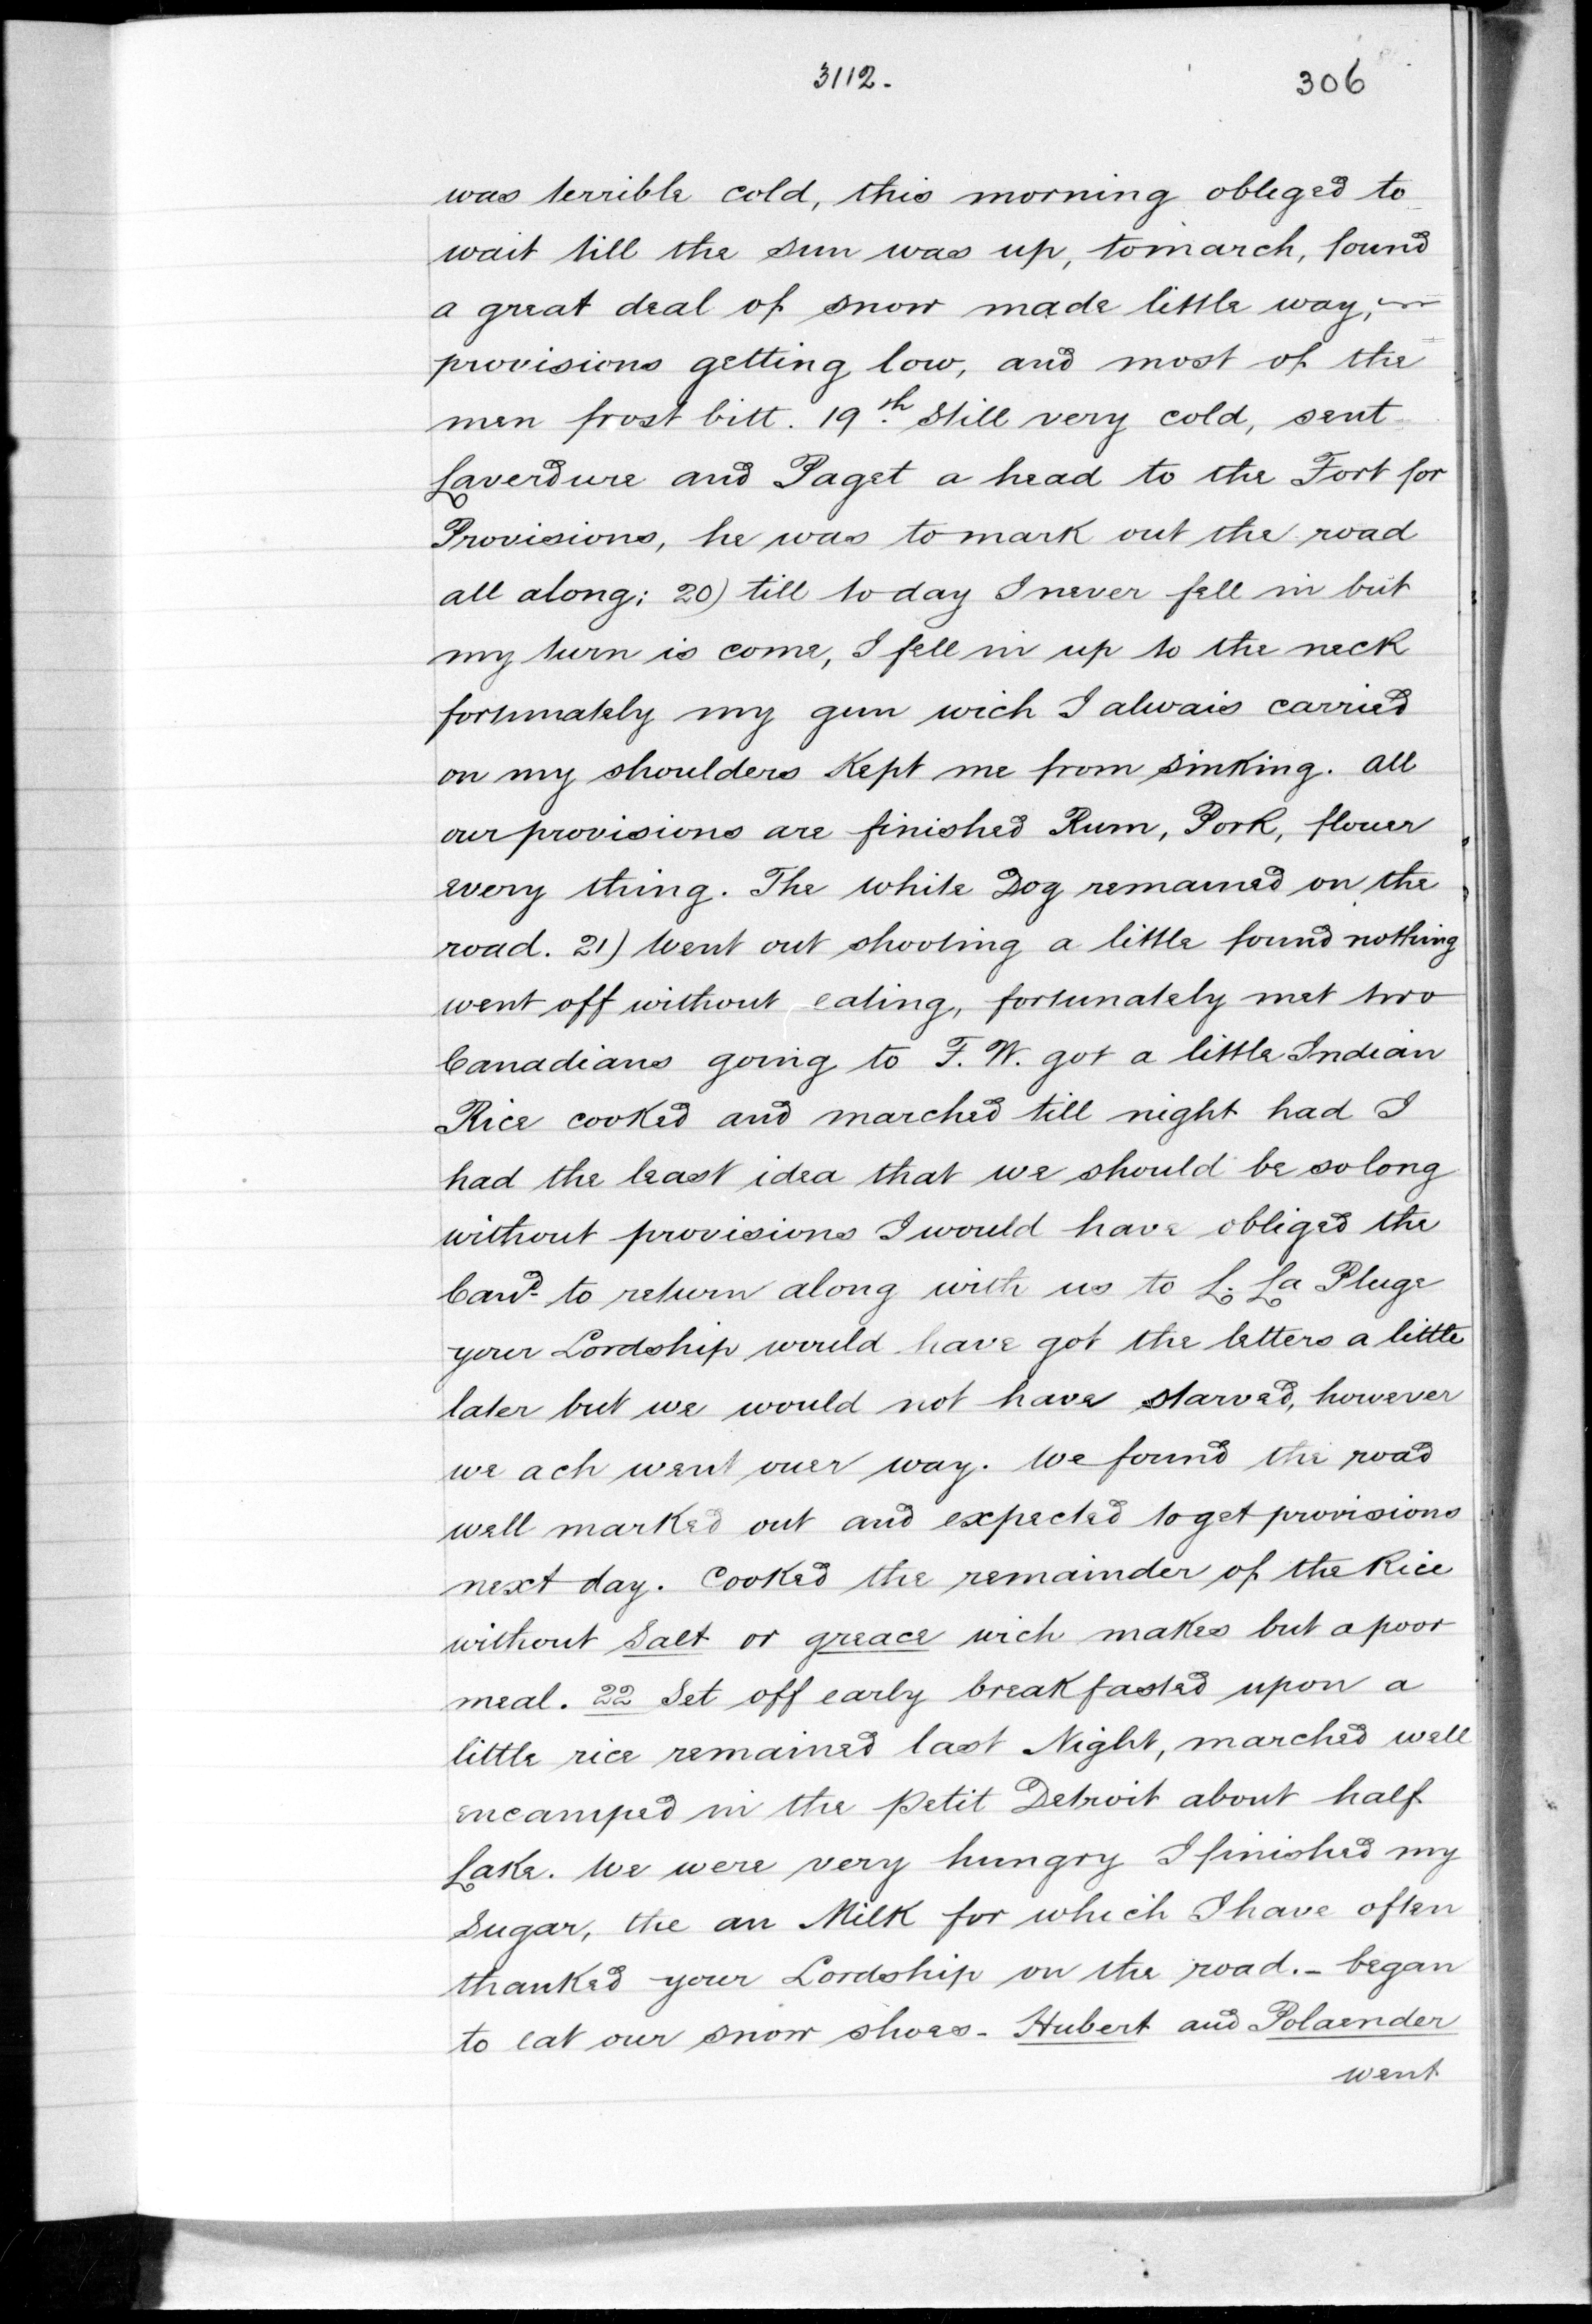 3112.
306
was terrible cold, this morning obleged to
wait till the sun was up, to march, found
a great deal of snow made little way,
provisions getting low, and most of the
men frost bitt. 19th Still very cold, sent
Laverdure and Paget a head to the Fort for
Provisions, he was to mark out the road
all along; 20) till to day I never fell in but
my turn is come, I fell in up to the neck
fortunately my gun wich I alwais carried
on my shoulders Kept me from sinking. all
our provisions are finished Rum, Pork, flouer
every thing. The white Dog remained on the
road. 21) Went out shooting a little found nothing
went off without eating, fortunately met two
Canadians going to F. W. got a little Indian
Rice cooked and marched till night had I
had the least idea that we should be so long
without provisions I would have obliged the
Cand to return along with us to L. La Pluge
your Lordship would have got the letters a little
later but we would not have starved, however
we ach went ouer way. We found the road
well marked out and expected to get provisions
next day. Cooked the remainder of the Rice
without Salt or greace wich makes but a poor
meal. 22 Set off early breakfasted upon a
little rice remained last Night, marched well
encamped in the petit Detroit about half
Lake. We were very hungry I finished my
Sugar, the an Milk for which I have often
thanked your Lordship on the road. - began
to eat our snow shoes - Hubert and Polaender
went